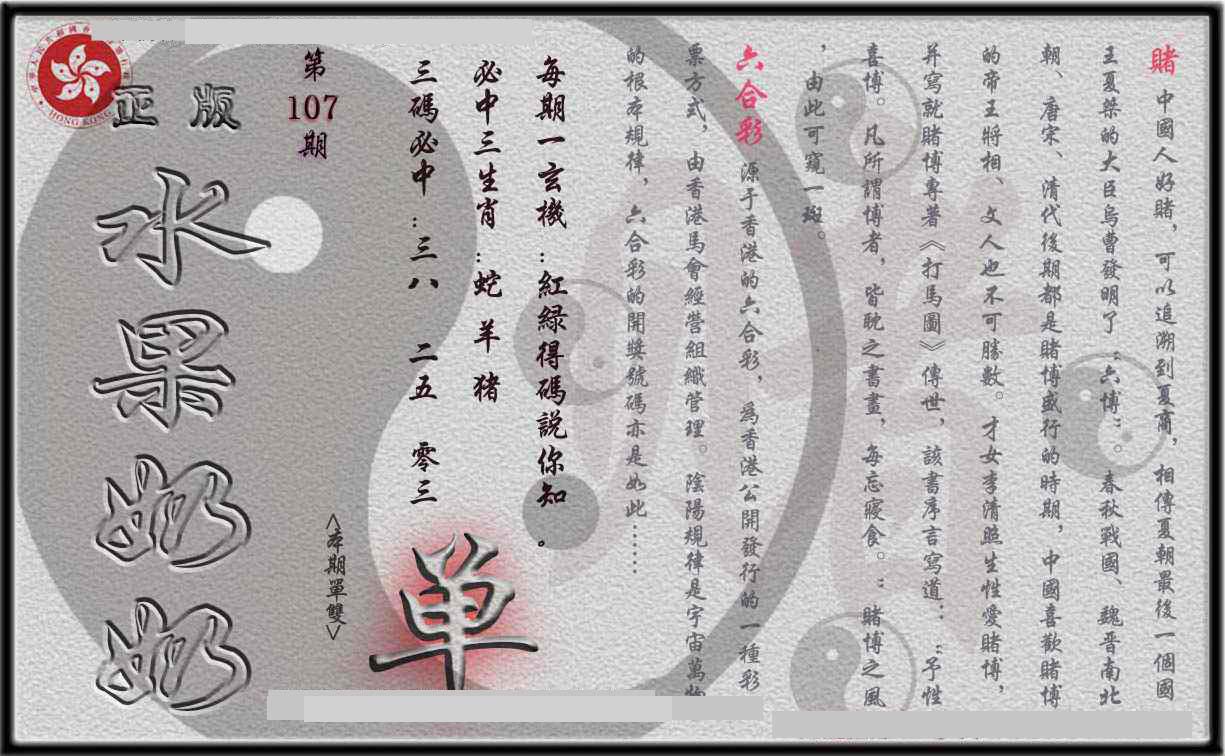 賭 中國人好賭，可以追溯到夏商，相傳夏朝最後一個國
王夏桀的大臣烏曹發明了“六博”。春秋戰國、魏晋南北
朝、唐宋、清代後期都是賭博盛行的時期，中國喜歡賭博
的帝王將相、文人也不可勝數。才女李清照生性愛賭博，
并寫就賭博專著《打馬圖》傳世，該書序言寫道：“予性
喜博。凡所謂博者，皆耽之書畫，每忘寢食。“賭博之風
，由此可窺一斑。
六合彩 源于香港的六合彩，爲香港公開發行的一種彩
票方式，由香港馬會經營組織管理。陰陽規律是宇宙萬物
的根本規律，六合彩的開獎號碼亦是如此……
每期一玄機：紅緑得碼説你知。
必中三生肖：蛇 羊 猪
三碼必中：三八 二五 零三
第
107
期
<本期單雙>
单
正版
水果奶奶
HONG KONG